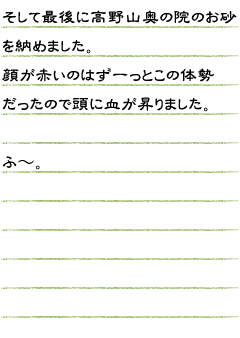 そして最後に高野山奥の院のお砂
を納めました。
顔が赤いのはずーっとこの体勢
だったので頭に血が昇りました。
ふ～。